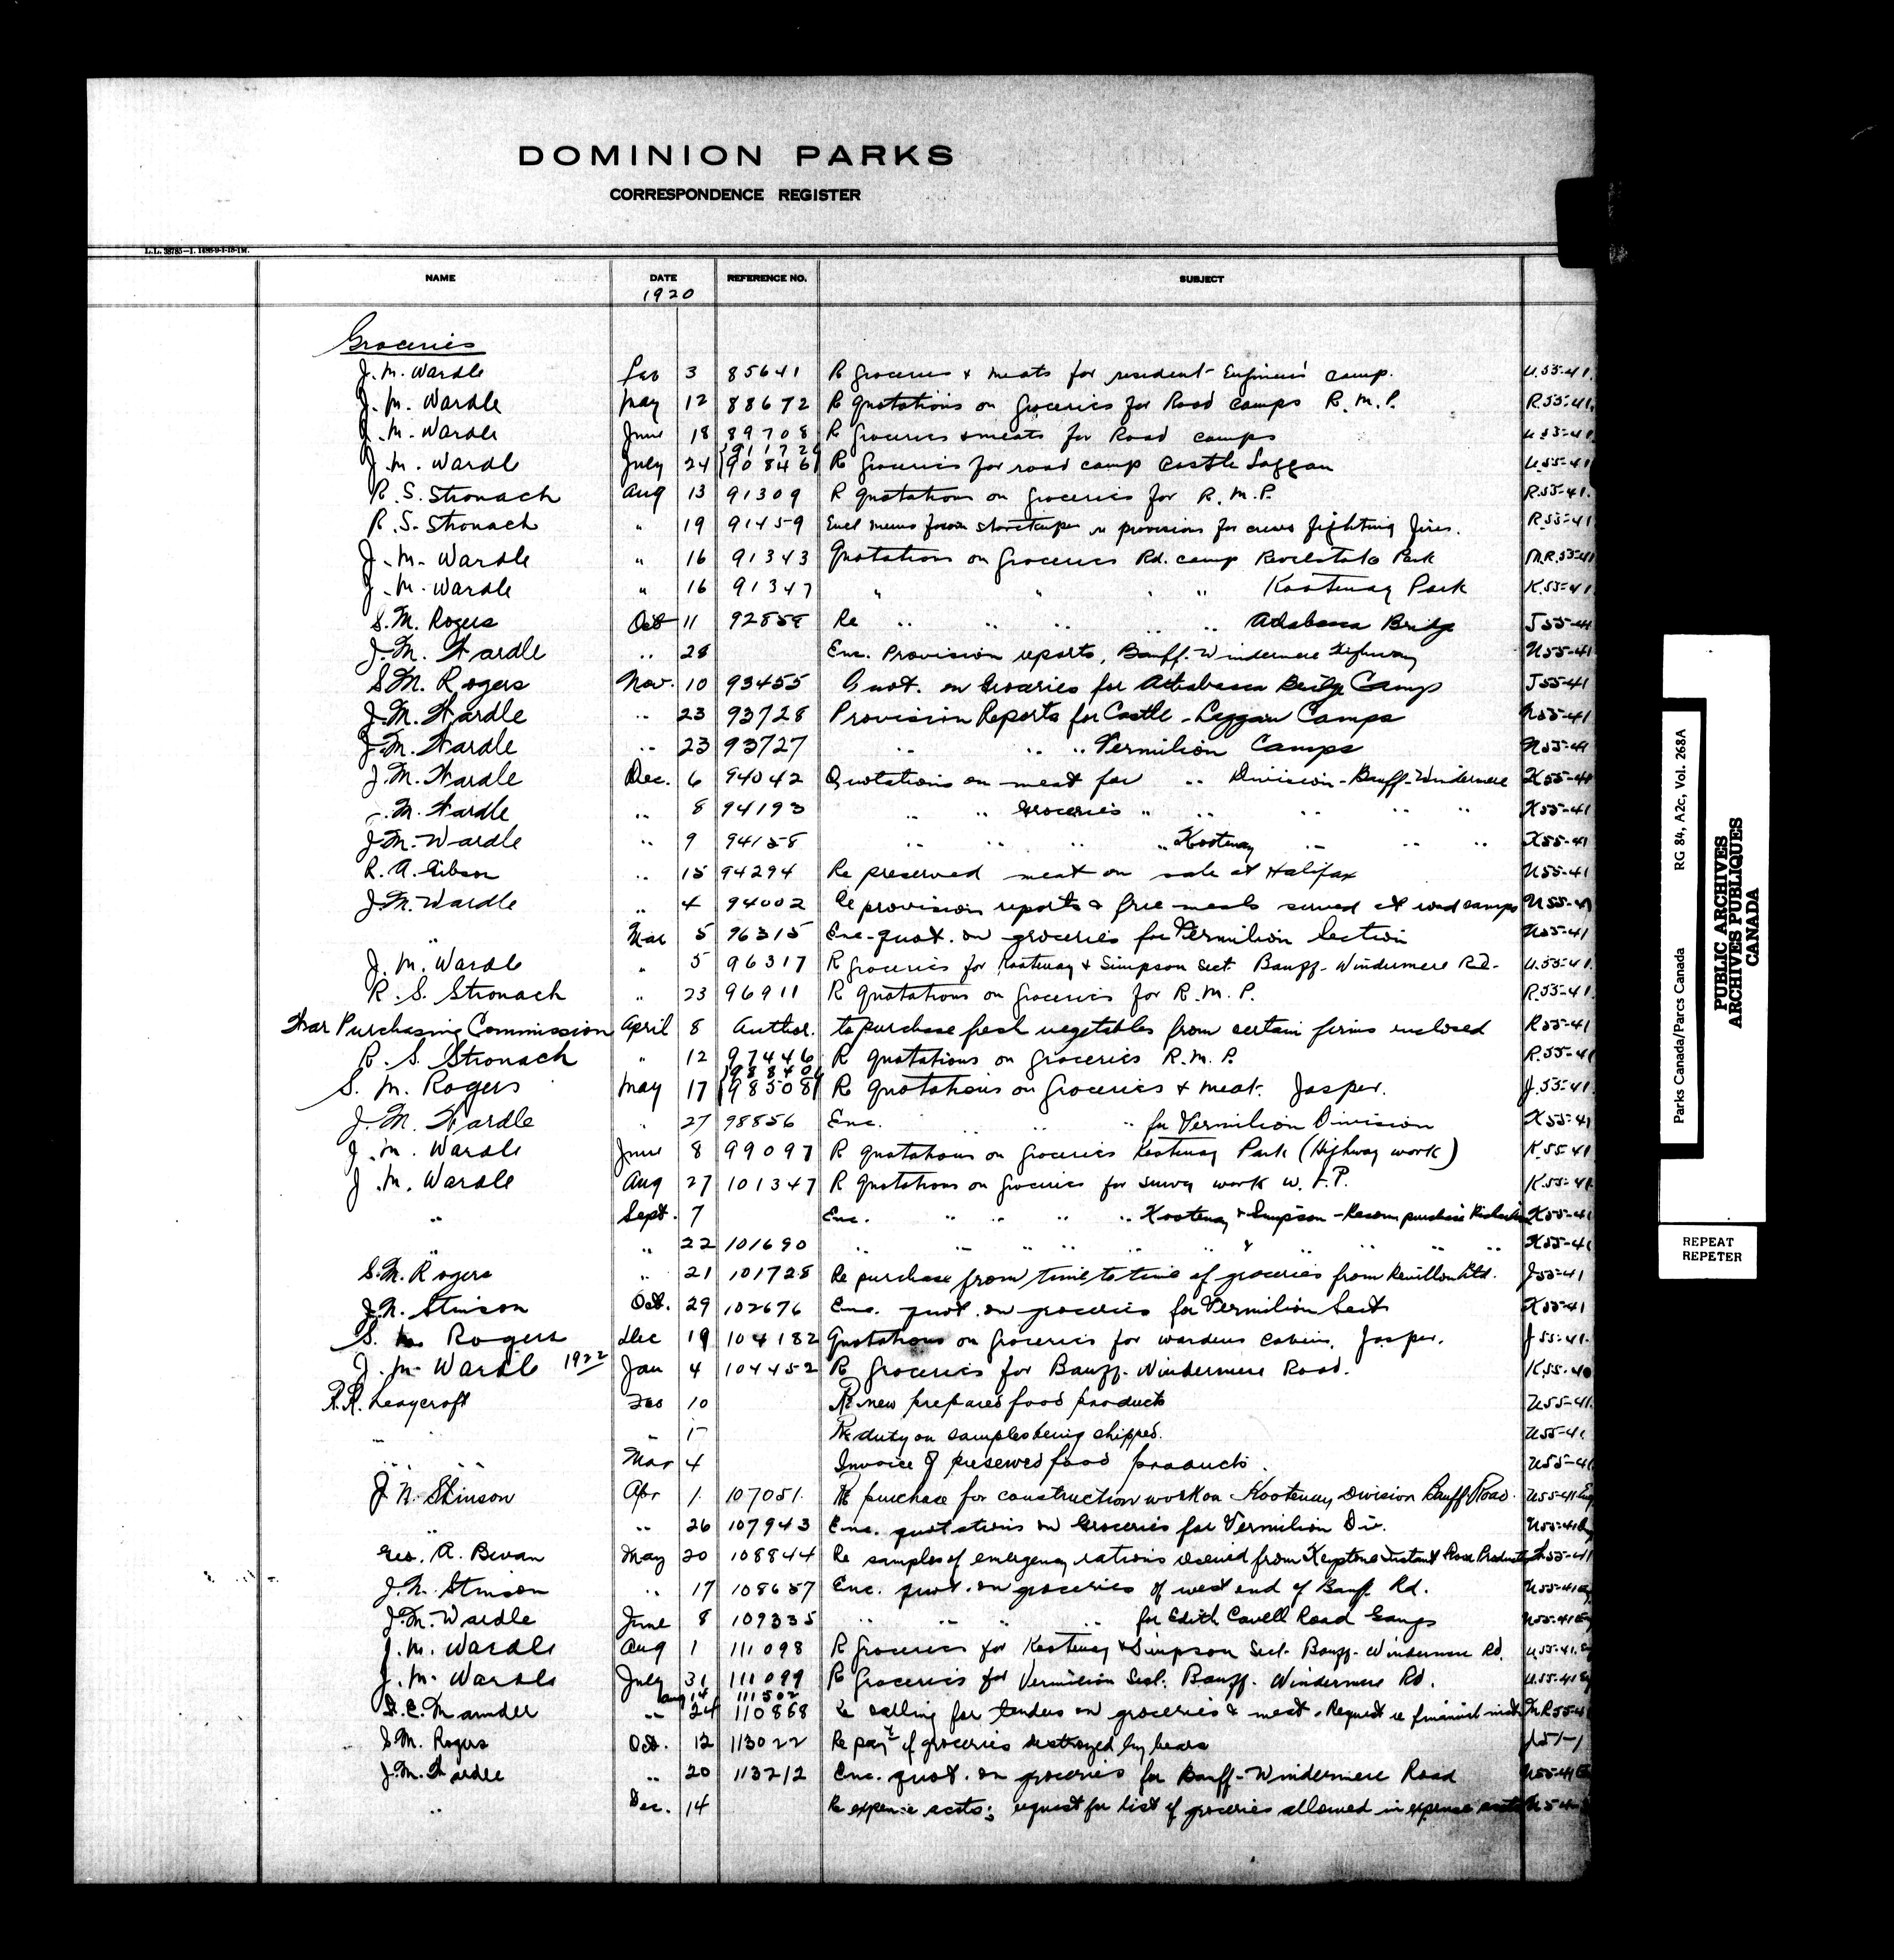 DOMINION PARKS
CORRESPONDENCE REGISTER
NAME DATE REFERENCE NO. SUBJECT
1920
Groceries
J. M. Wardle 3 85641 Re Groceries & meats for resident Engineers camp. U.55-41.
J. M. Wardle May 12 88672 Re quotations on Groceries for Road camps R.M.P. R.55-41.
J. M. Wardle June 18 89708 Re Groceries & meats for Road camps U.55-41
91172
J. M. Wardle July 24 90846 Re Groceries for road camp Castle Laggan U.55-41
R. S. Stronach Aug 13 91309 Re quotations on Groceries for R.M.P. R.55-41.
R. S. Stronach " 19 91459 Encl memo from storekeeper re provisions for crews fighting fires. R.55-41
J. M. Wardle " 16 91343 Quotations on Groceries Rd. camp Revelstoke Park M.R.55-41
J. M. Wardle " 16 91347 " " " " Kootenay Park K.55-41
S. M. Rogers Oct 11 92858 Re " " " " " Athabasca Bridge J55-41
J. M. Wardle " 28 Enc. Provision reports, Banff-Windermere Highway U55-41
S. M. Rogers Nov. 10 93455 Quot. on Groceries for Athabasca Bridge Camp J55-41
J. M. Wardle " 23 93728 Provision Reports for Castle-Laggan Camps U55-41
J. M. Wardle " 23 93727 " " " Vermilion Camps U55-41
J. M. Wardle Dec. 6 94042 Quotations on meat for " Division-Banff-Windermere K55-41
J. M. Wardle " 8 94193 " " Groceries " " " " " K55-41
J. M. Wardle " 9 94158 " " " " Kootenay " " " K55-41
R. A. Gibson " 15 94294 Re preserved meat on sale at Halifax U55-41
J. M. Wardle " 4 94002 Re provision reports & free meals served at road camps U55-41
" Mar 5 96315 Enc. quot. on groceries for Vermilion Section U55-41
J. M. Wardle " 5 96317 Re Groceries for Kootenay & Simpson Sect. Banff-Windermere Rd. U.55-41.
R. S. Stronach " 23 96911 Re quotations on Groceries for R.M.P. R.55-41
War Purchasing Commission April 8 Author. to purchase fresh vegetables from certain firms enclosed R55-41
R. S. Stronach " 12 97446 Re quotations on Groceries R.M.P. R.55-41
98840
S. M. Rogers May 17 98508 Re quotations on Groceries & meat. Jasper. J.55-41.
J. M. Wardle " 27 98856 Enc. " " " for Vermilion Division K55-41
J. M. Wardle June 8 99097 Re quotations on Groceries Kootenay Park (Highway work) K.55-41
J. M. Wardle Aug 27 101347 Re Quotations on Groceries for survey work W.L.P. K.55-41.
" Sept. 7 Enc. " " " " Kootenay & Simpson - Recom purchase K55-41
" " 22 101690 " " " " " " & " " " " K55-41
S. M. Rogers " 21 101728 Re purchase from time to time of groceries from Revillon Ltd. J55-41
J. N. Stinson Oct. 29 102676 Enc. quot. on groceries for Vermilion Sect K55-41
S. M. Rogers Dec 19 104182 Quotations on Groceries for wardens cabins, Jasper. J55-41.
J. M. Wardle 1922 Jan 4 104452 Re Groceries for Banff-Windermere Road. K.55-40
R.R. Leaycroft Feb 10 Re new prepared food products U55-41.
" " Re duty on samples being shipped. U55-41
" " " Mar 4 Invoice of preserved food products. U55-41
J. N. Stinson Apr 1. 107051. Re purchase for construction work on Kootenay Division Banff Road. U55-41 Eng
" " 26 107943 Enc. quotations on Groceries for Vermilion Div. U55-41 Eng
Geo. A. Bevan May 20 108844 Re samples of emergency rations received from Keystone Instant Food Products U55-41
J. N. Stinson " 17 108657 Enc. quot. on groceries of west end of Banff Rd. U55-41 Eng
J. M. Wardle June 8 109335 " " " " for Edith Cavell Road Gangs U55-41 Eng
J. M. Wardle Aug 1 111098 Re Groceries for Kootenay & Simpson Sect. Banff-Windermere Rd. U.55-41. Eng
J. M. Wardle July 31 111099 Re Groceries for Vermilion Sect. Banff-Windermere Rd. U.55-41 Eng
Aug 14 111502
" 24 110868 Re calling for tenders on groceries & meat. Request re M.R.55-41
S. M. Rogers Oct. 12 113022 Re pay't of groceries destroyed by bears
J. M. Wardle " 20 113212 Enc. quot. on groceries for Banff-Windermere Road U55-41 Eng
" Dec. 14 Re expense accts; request for list of groceries allowed in expense accts
Parks Canada/Parcs Canada RG 84, A2c, Vol. 268A
PUBLIC ARCHIVES
ARCHIVES PUBLIQUES
CANADA
REPEAT
REPETER